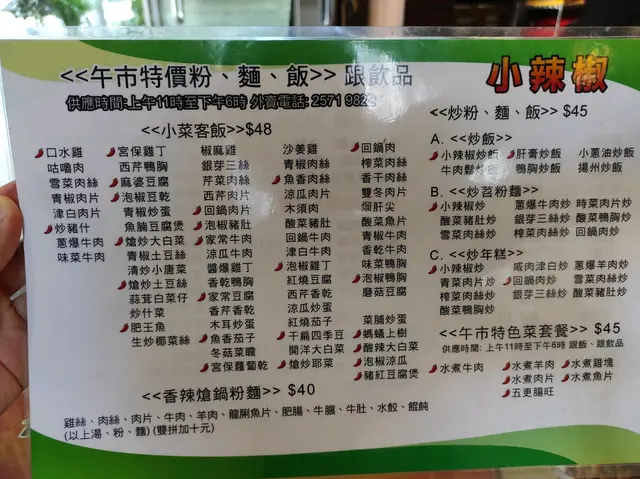 <<午市特價粉、麵、飯>> 跟飲品
小辣椒
供應時間:上午11時至下午6時 外賣電話: 2571 982
<<小菜客飯>>$48
口水雞
咕嚕肉
雪菜肉絲
青椒肉片
津白肉片
炒豬什
蔥爆牛肉
味菜牛肉
宮保雞丁
西芹鴨胸
麻婆豆腐
泡椒豆乾
青椒炒蛋
魚腩豆腐煲
熗炒大白菜
青椒土豆絲
清炒小唐菜
熗炒土豆絲
蒜茸白菜仔
炒什菜
肥王魚
生炒椰菜絲
椒麻雞
銀芽三絲
芹菜肉絲
西芹肉片
回鍋肉片
泡椒豬肚
家常牛肉
涼瓜牛肉
醬爆雞丁
香乾鴨胸
家常豆腐
香芹香乾
木耳炒蛋
魚香茄子
冬菇菜膽
宮保蘿蔔乾
沙姜雞
青椒肉絲
魚香肉絲
涼瓜肉片
木須肉
回鍋牛肉
津白牛肉
泡椒雞丁
紅燒豆腐
西芹香乾
涼瓜炒蛋
紅燒茄子
干扁四季豆
開洋大白菜
熗炒耶菜
回鍋肉
榨菜肉絲
香干肉絲
雙冬肉片
熘肝尖
酸菜魚片
青椒牛肉
香乾牛肉
味菜鴨胸
泡椒鴨胸
磨菇豆腐
菜脯炒蛋
螞蟻上樹
酸辣大白菜
泡椒涼瓜
豬紅豆腐煲
<<香辣熗鍋粉麵>> $40
雞絲、肉絲、肉片、牛肉、羊肉、龍脷魚片、肥腸、牛腩、牛肚、水餃、餛飩
(以上湯、粉、麵) (雙拼加十元)
<<炒粉、麵、飯>> $45
A. <<炒飯>>
小辣椒炒飯 肝膏炒飯 小蔥油炒飯
牛肉鬆炒飯 鴨胸炒飯 揚州炒飯
B. <<炒苕粉麵>>
小辣椒炒 蔥爆牛肉炒 時菜肉片炒
酸菜豬肚炒 銀芽三絲炒 酸菜鴨胸炒
雪菜肉絲炒 榨菜肉絲炒 回鍋肉炒
C. <<炒年糕>>
小辣椒炒 咸肉津白炒 蔥爆羊肉炒
青菜肉片炒 回鍋肉炒 雪菜肉絲炒
榨菜肉絲炒 銀芽三絲炒 酸菜豬肚炒
酸菜鴨胸炒
<<午市特色菜套餐>> $45
供應時間: 上午11時至下午6時 跟飯、跟飲品
水煮牛肉 水煮羊肉 水煮雞塊
水煮肉片 水煮魚片
五更腸旺